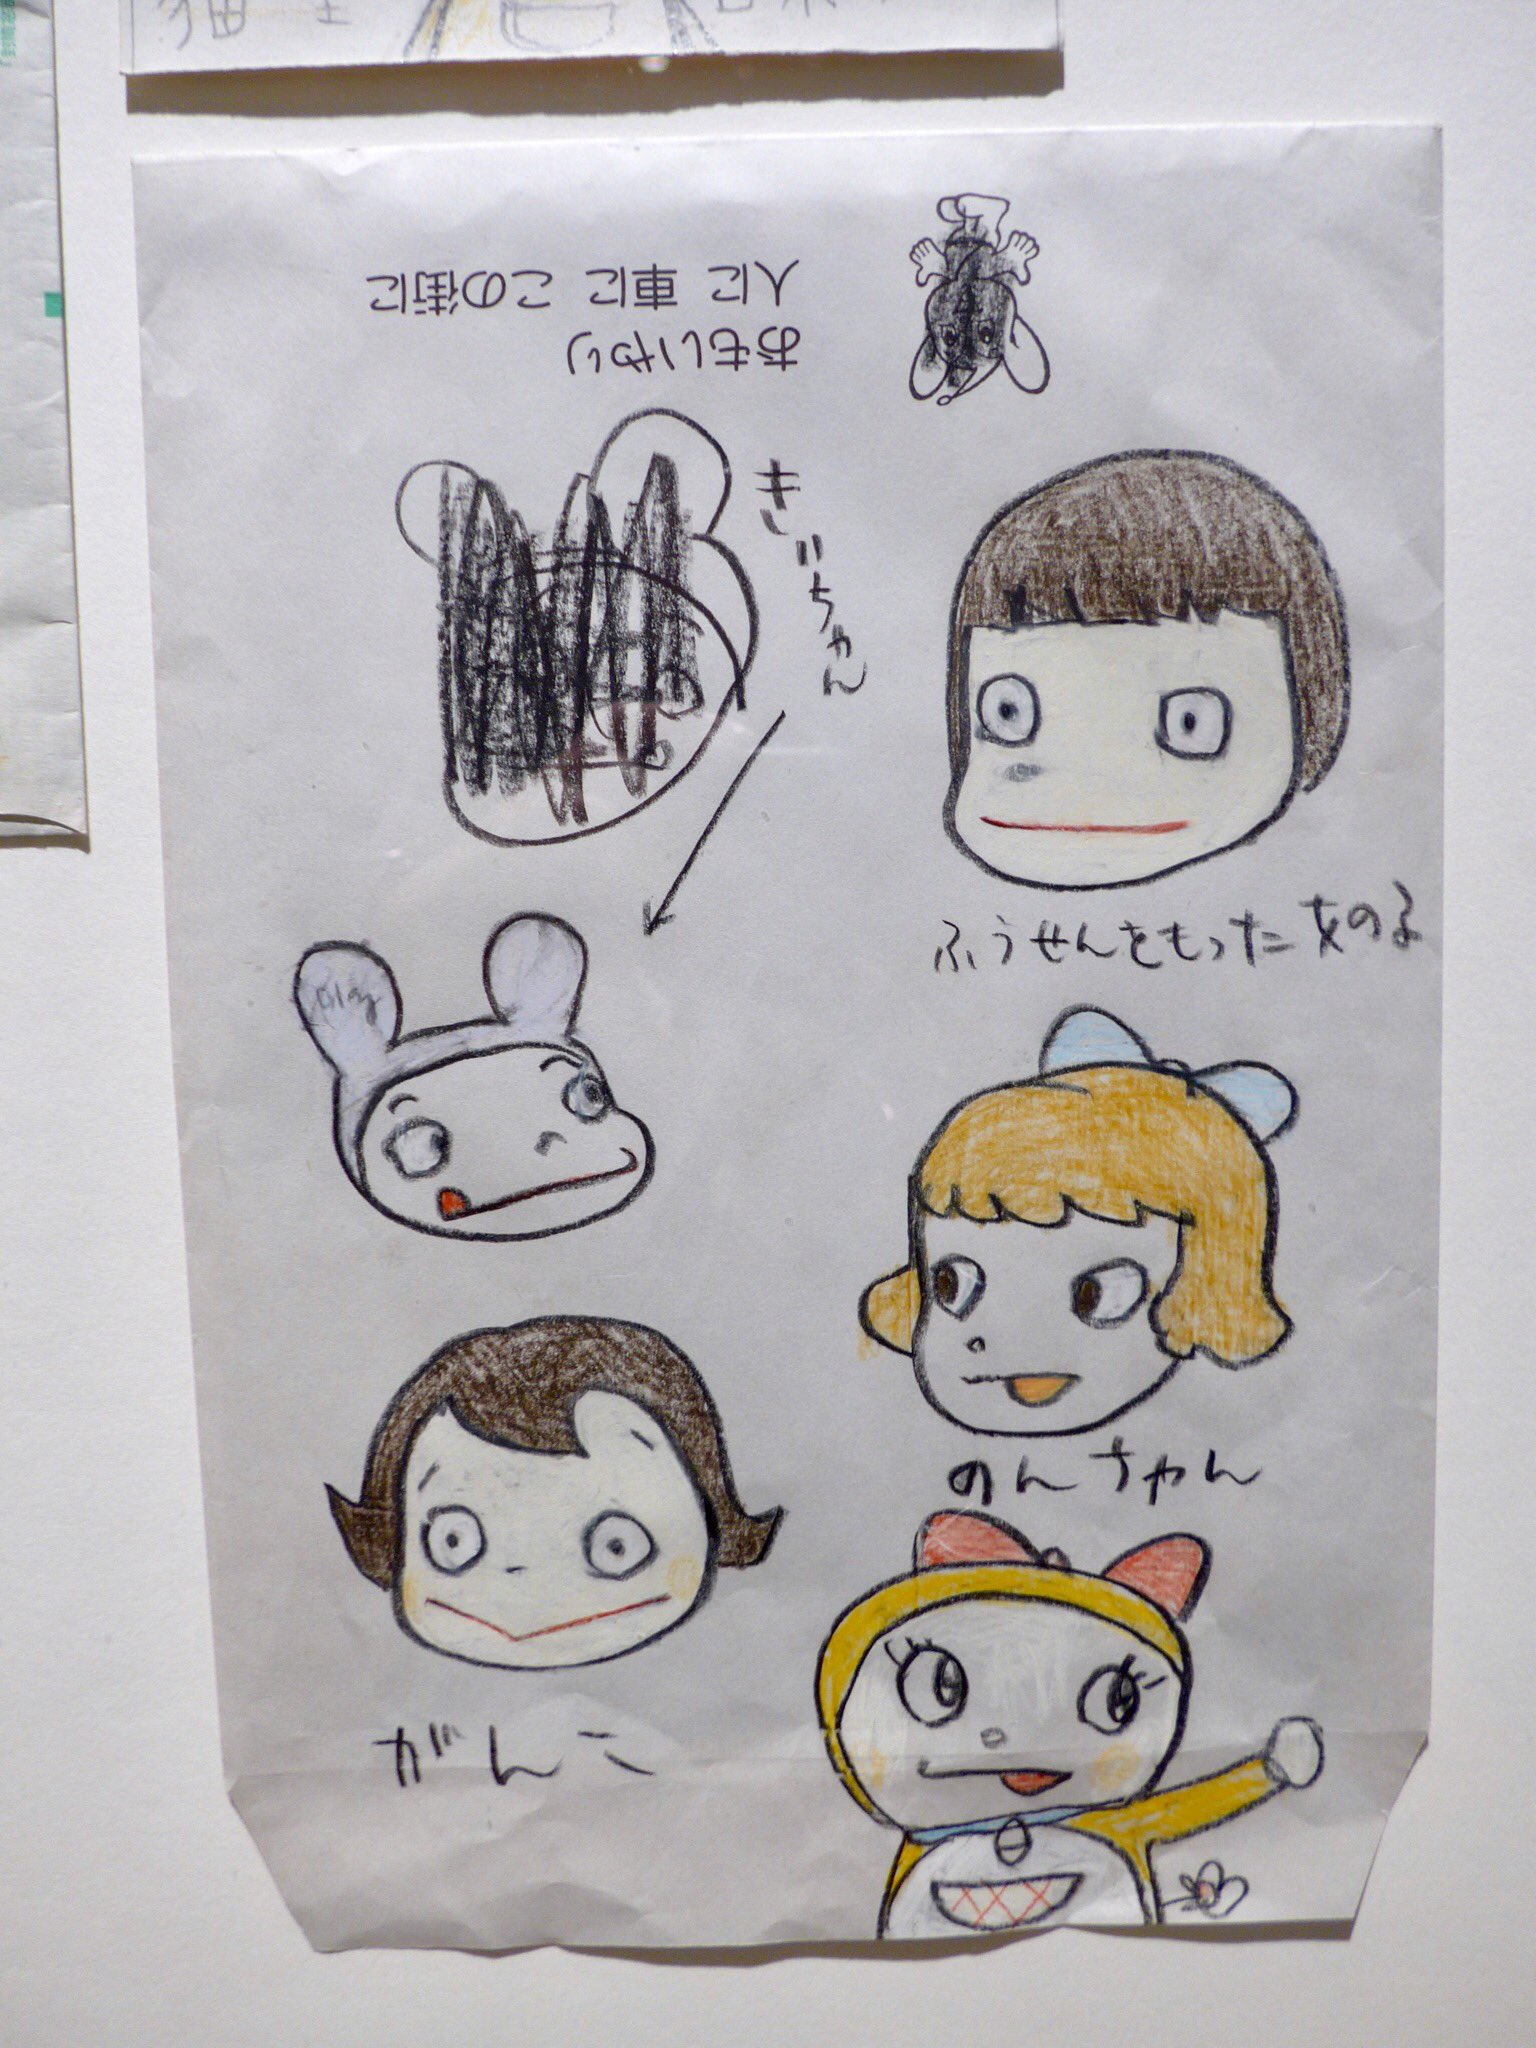 人に 車に この街に
おもいやり
きいちゃん
ふうせんをもった女の子
のんちゃん
がんこ